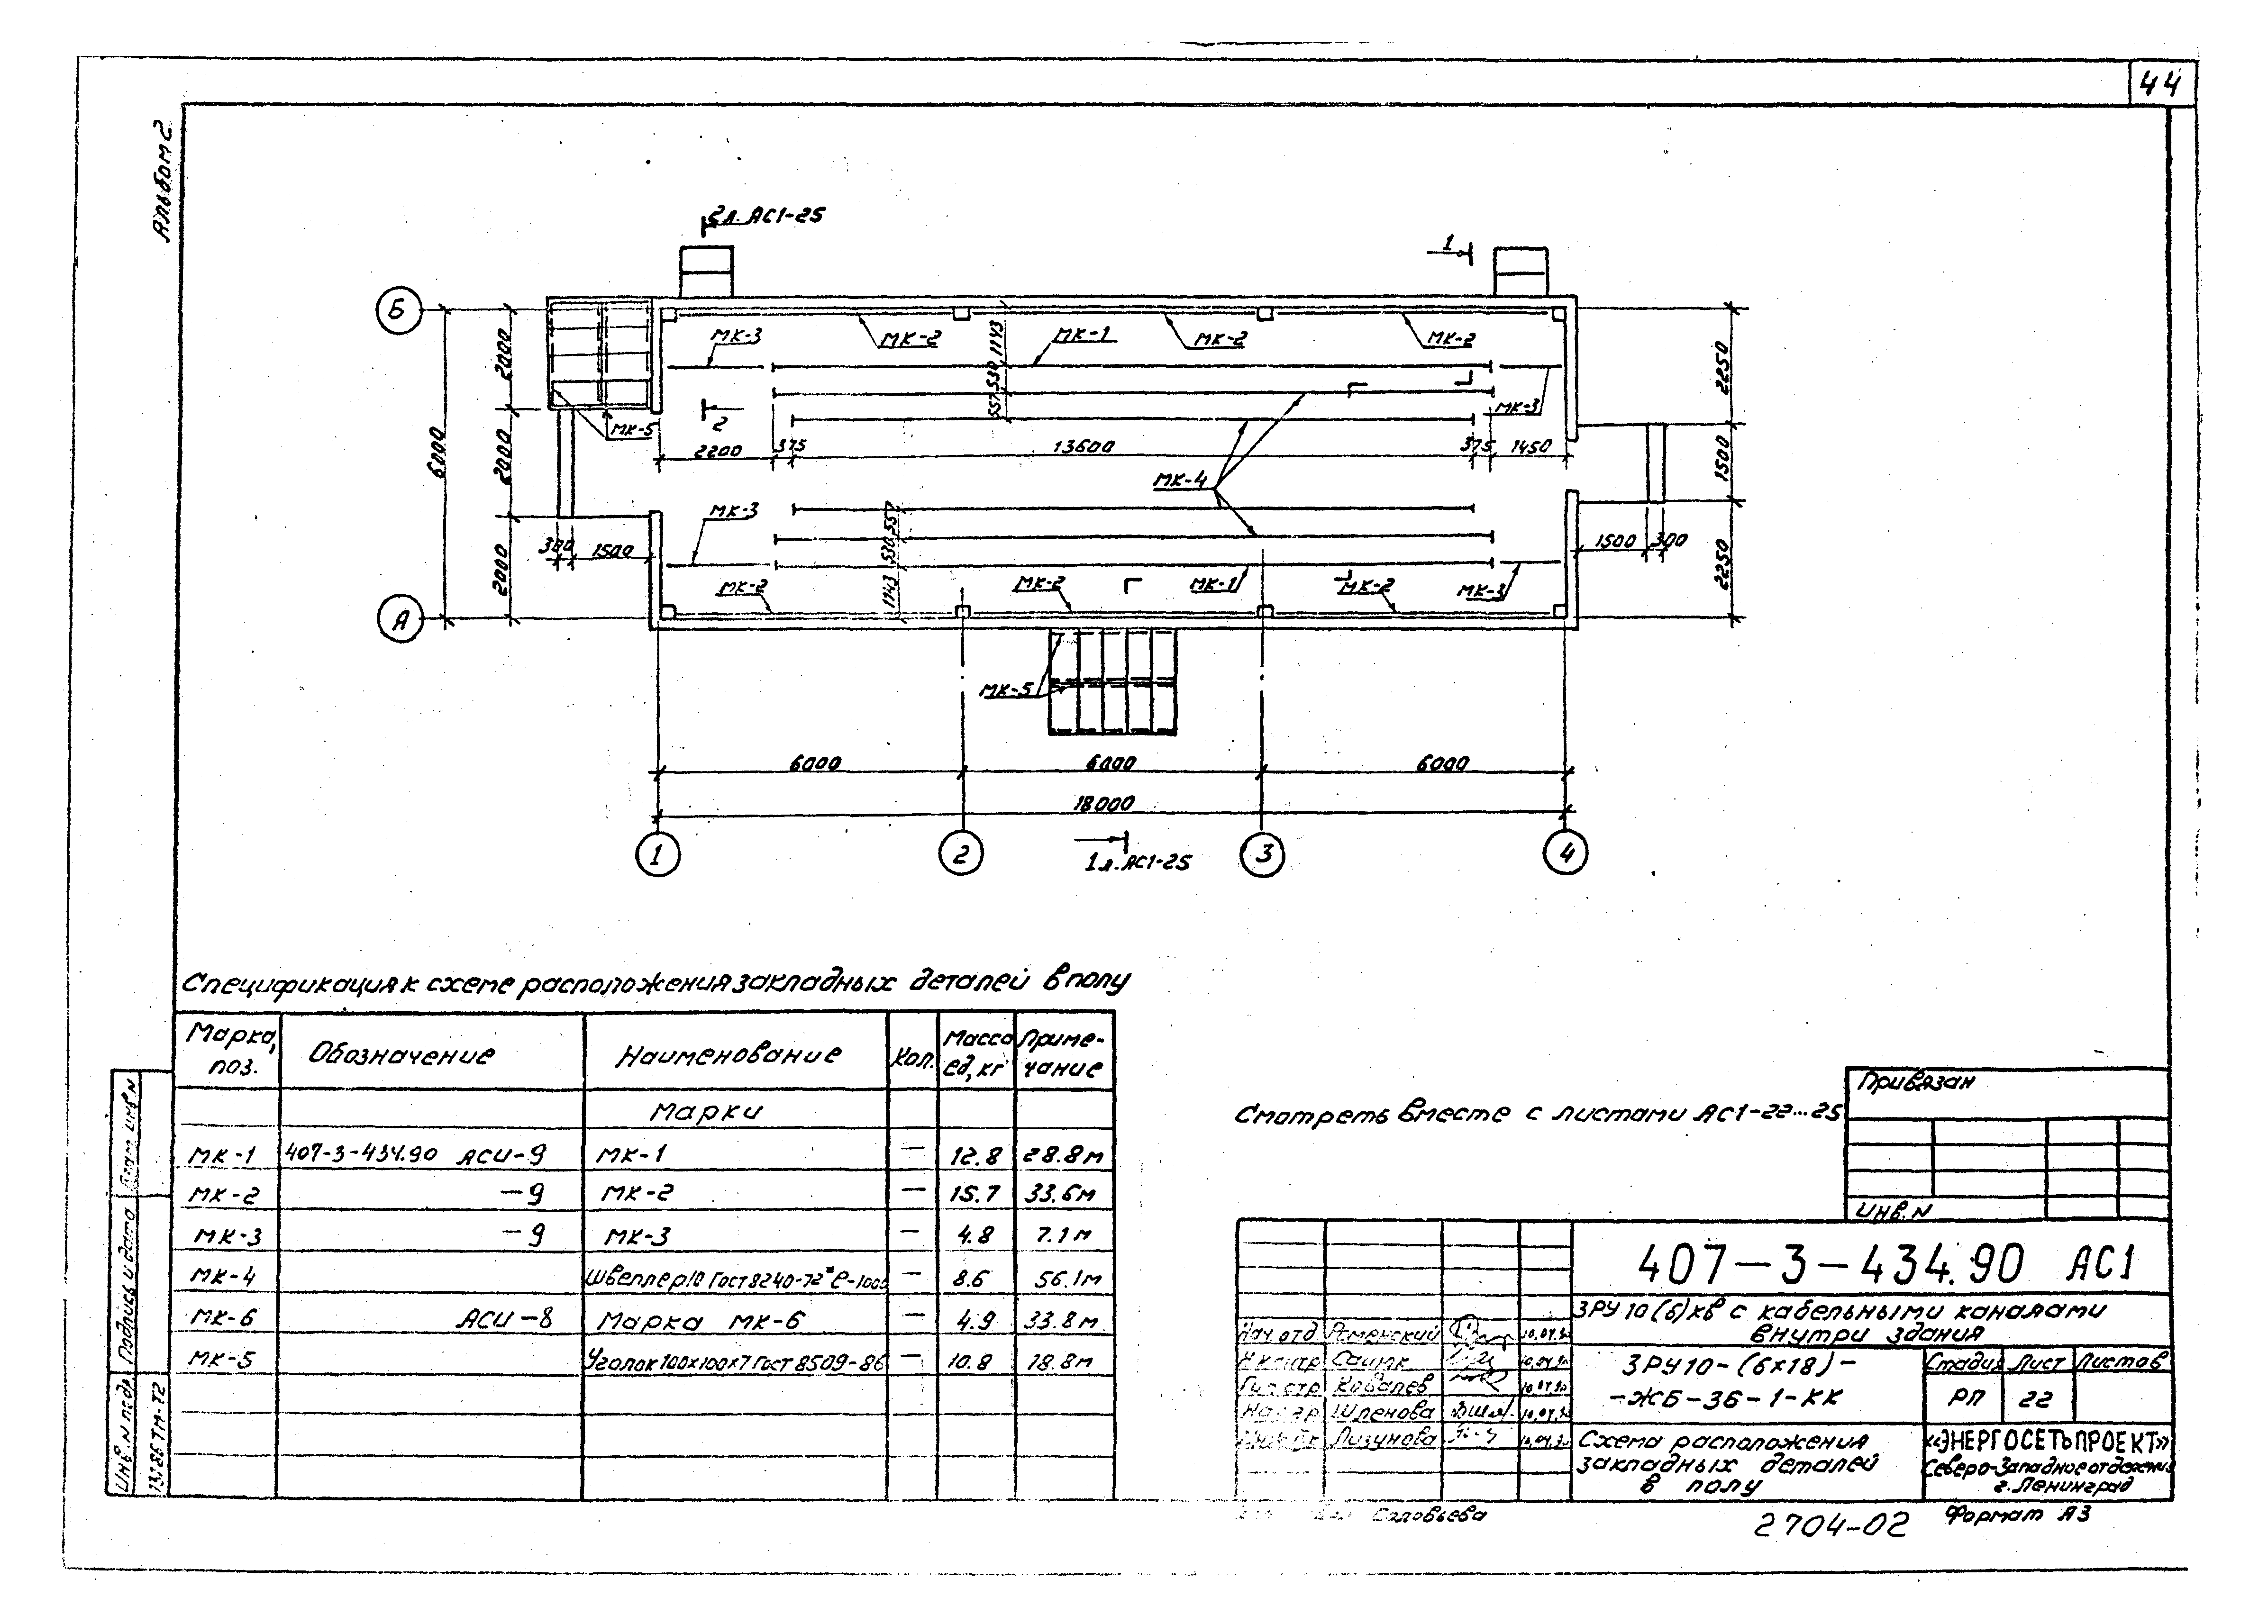 44
Альбом 2
2 л. АС1-25
1
Б
МК-3
МК-2
1143
МК-1
МК-2
МК-2
2000
530
557
2250
МК-5
2
МК-3
2200
375
13600
375
1450
6000
2000
1500
МК-4
МК-3
557
530
300
1500
1500
300
2000
МК-2
1143
МК-2
МК-1
МК-2
МК-3
2250
А
МК-5
6000
6000
6000
18000
1
2
3
4
1 л. АС1-25
Спецификация к схеме расположения закладных деталей в полу
Марка, поз. Обозначение Наименование Кол. Масса ед, кг Примечание
Марки
МК-1 407-3-434.90 АСИ-9 МК-1 — 12.8 28.8м
МК-2 -9 МК-2 — 15.7 33.6м
МК-3 -9 МК-3 — 4.8 7.1м
МК-4 Швеллер10 Гост8240-72* ℓ-1000 — 8.6 56.1м
МК-6 АСИ-8 Марка МК-6 — 4.9 33.8м
МК-5 Уголок100х100х7 Гост 8509-86 — 10.8 18.8м
Смотреть вместе с листами АС1-22...25
Привязан
Инв.N
407-3-434.90 АС1
ЗРУ 10(6)кв с кабельными каналами
внутри здания
Нач.отд Роменский 10.04.90
Н контр Сацюк
Гип стр Ковалев
Нач гр Шленова 10.04.90
Лизунова
ЗРУ10-(6х18)-
-ЖБ-36-1-КК
Стадия Лист Листов
РП 22
Схема расположения
закладных деталей
в полу
«ЭНЕРГОСЕТЬПРОЕКТ»
Северо-Западное отделение
г. Ленинград
Соловьева
2704-02
Формат А3
Взам. инв.N
Подпись и дата
Инв. N подл
13186 ТМ-Т2